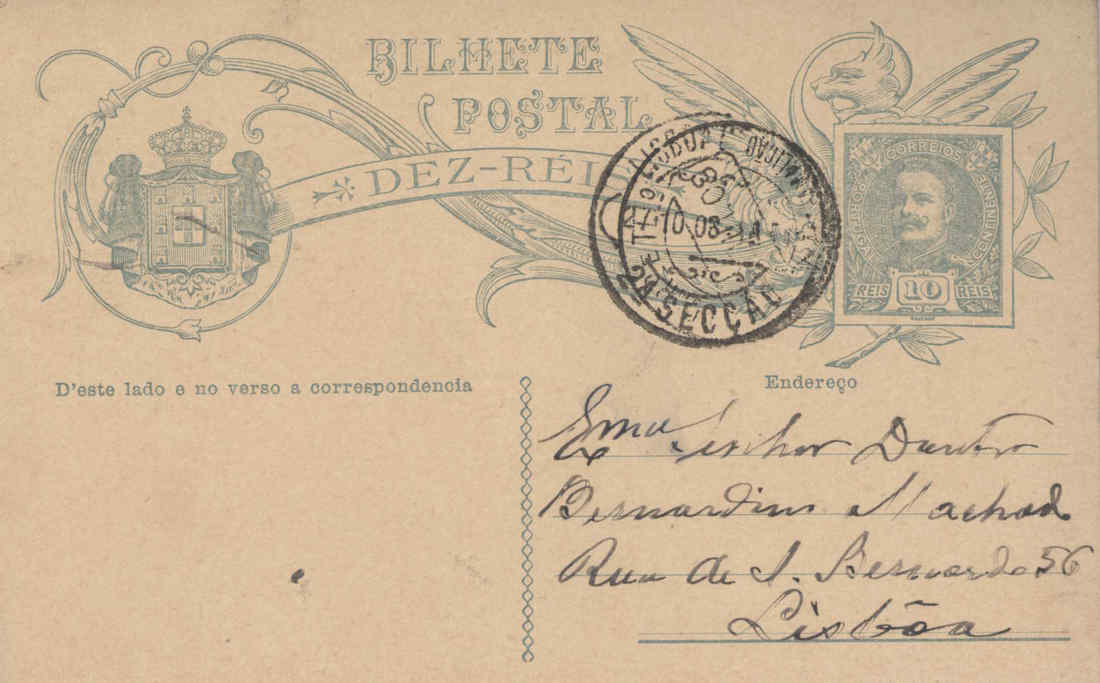 BILHETE
POSTAL
DEZ-RÉIS
CORREIOS
REIS 10 REIS
2ª SECÇÃO
D'este lado e no verso a correspondencia
Endereço
Exmo Senhor Doutor
Bernardino Machado
Rua de S. Bernardo 56
Lisbôa